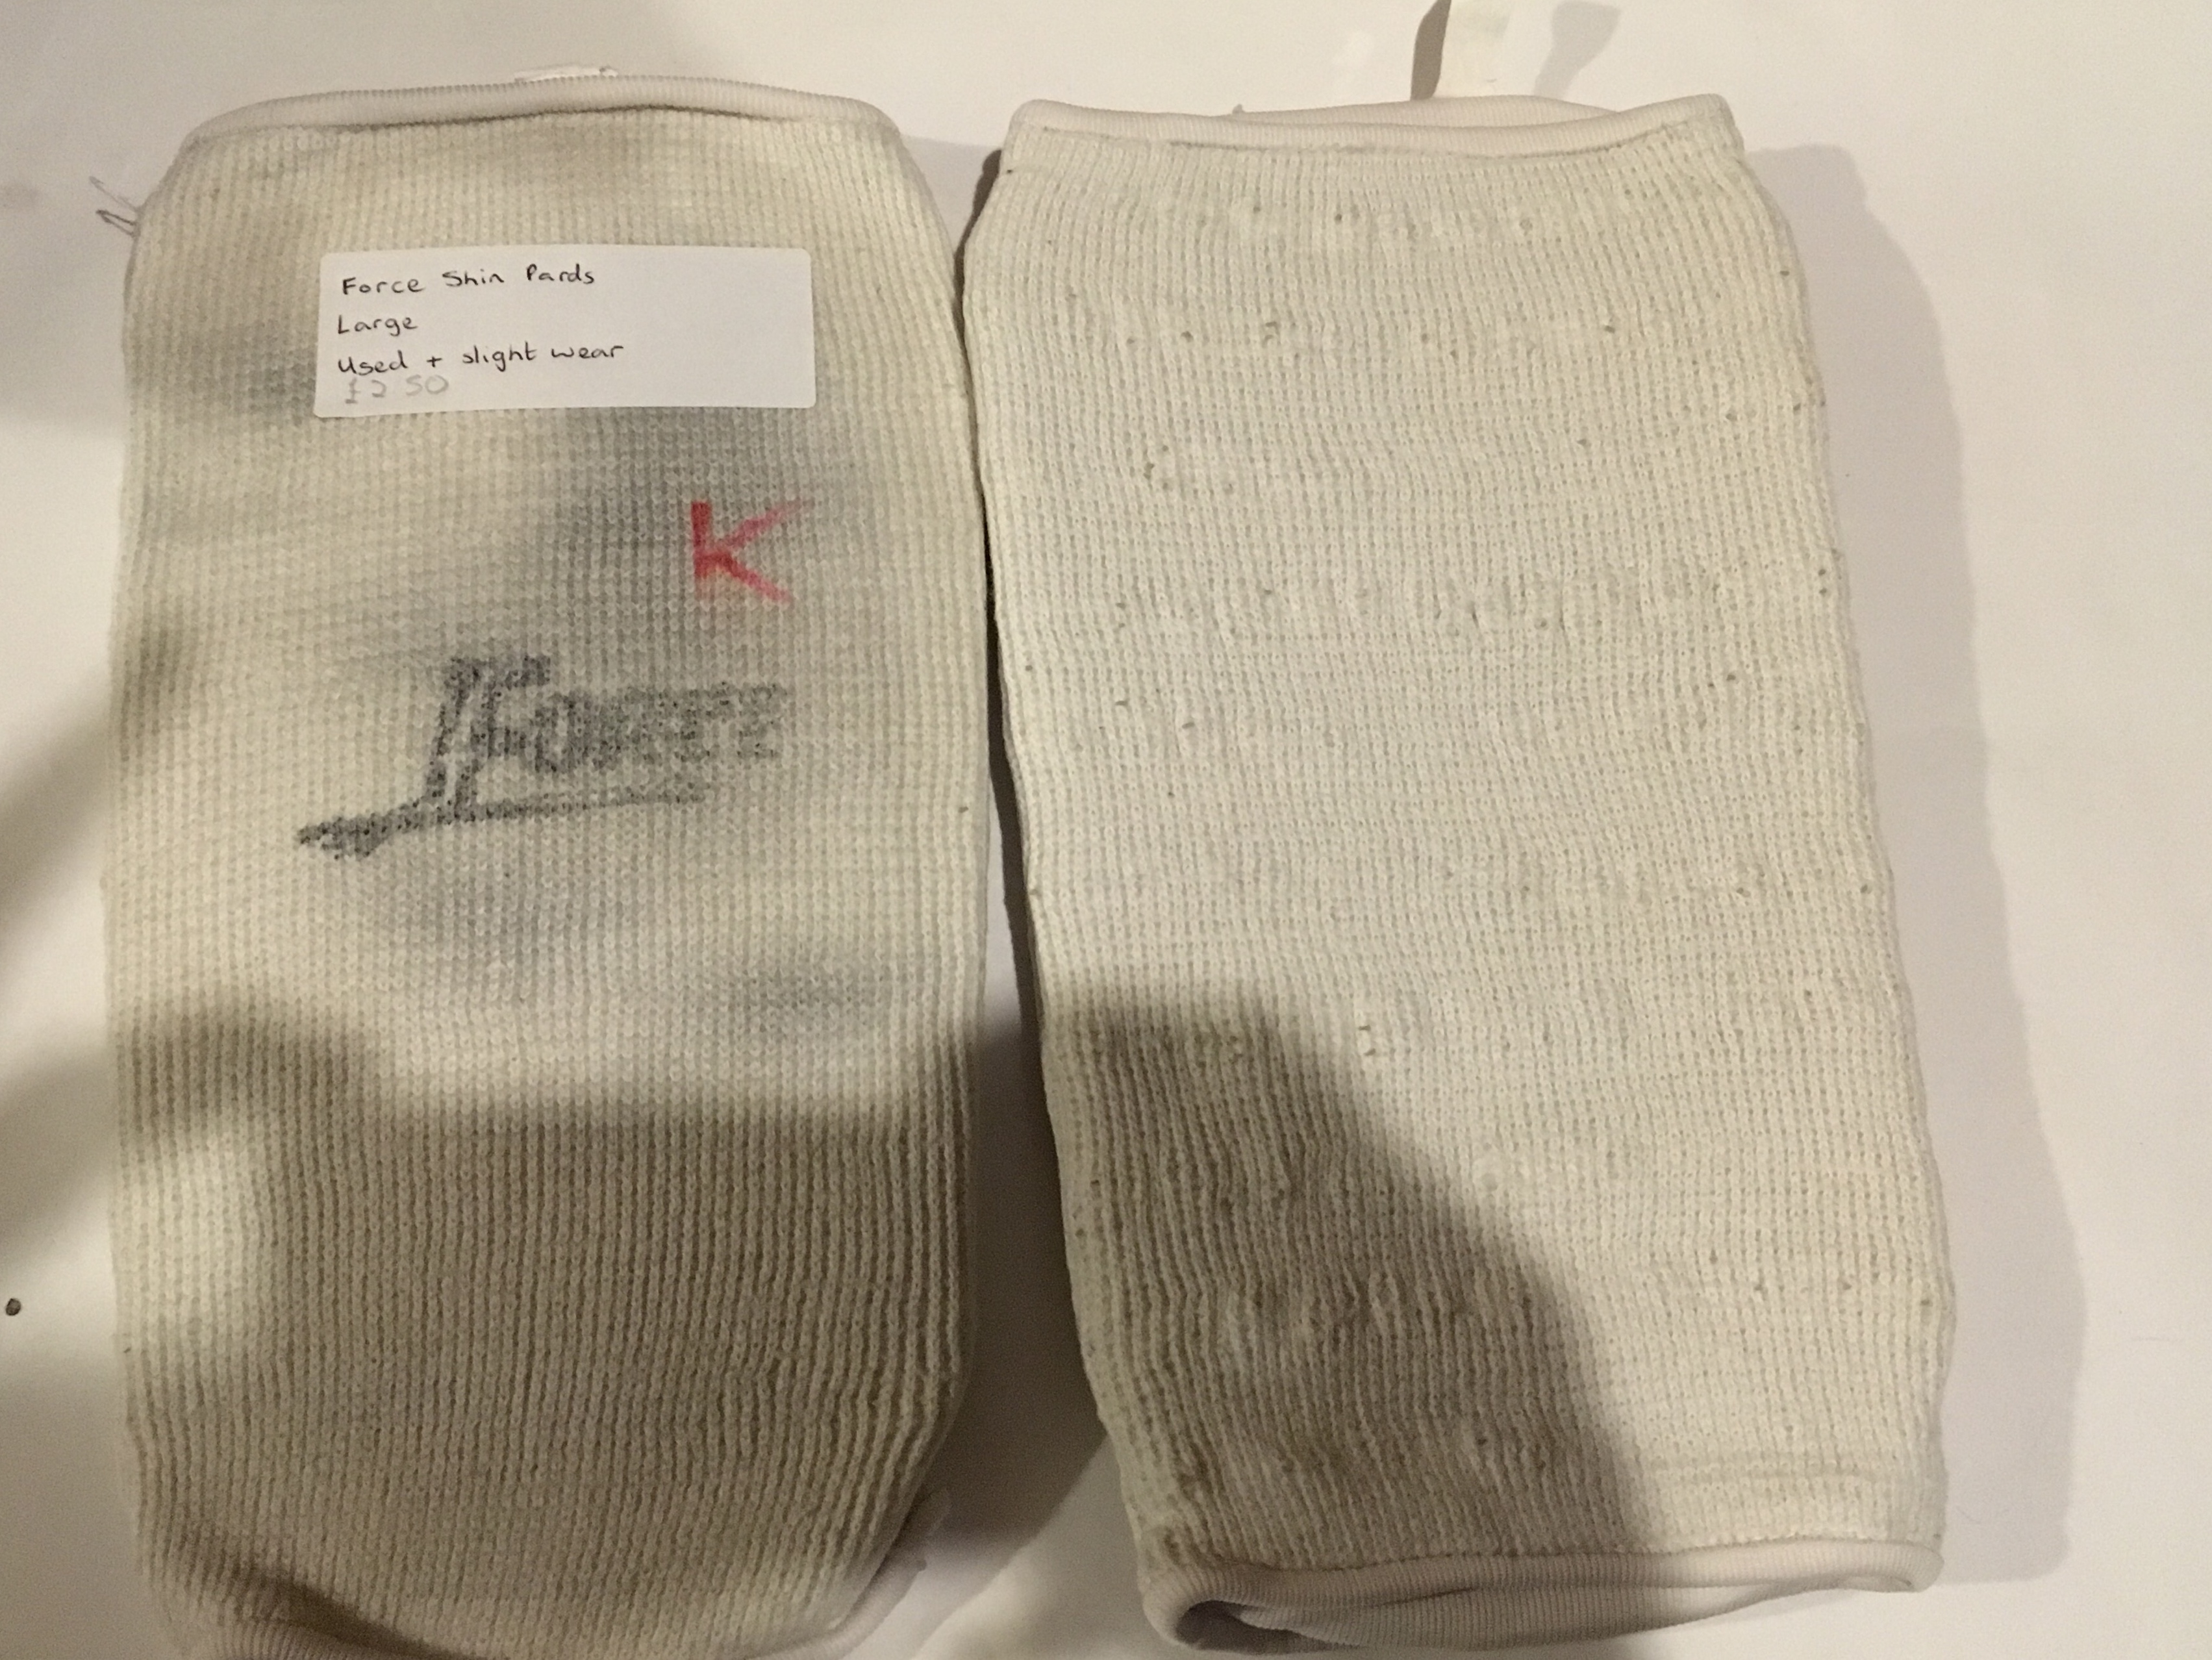 Force Shin Pards
Large
Used + slight wear
£2 50
K
Force